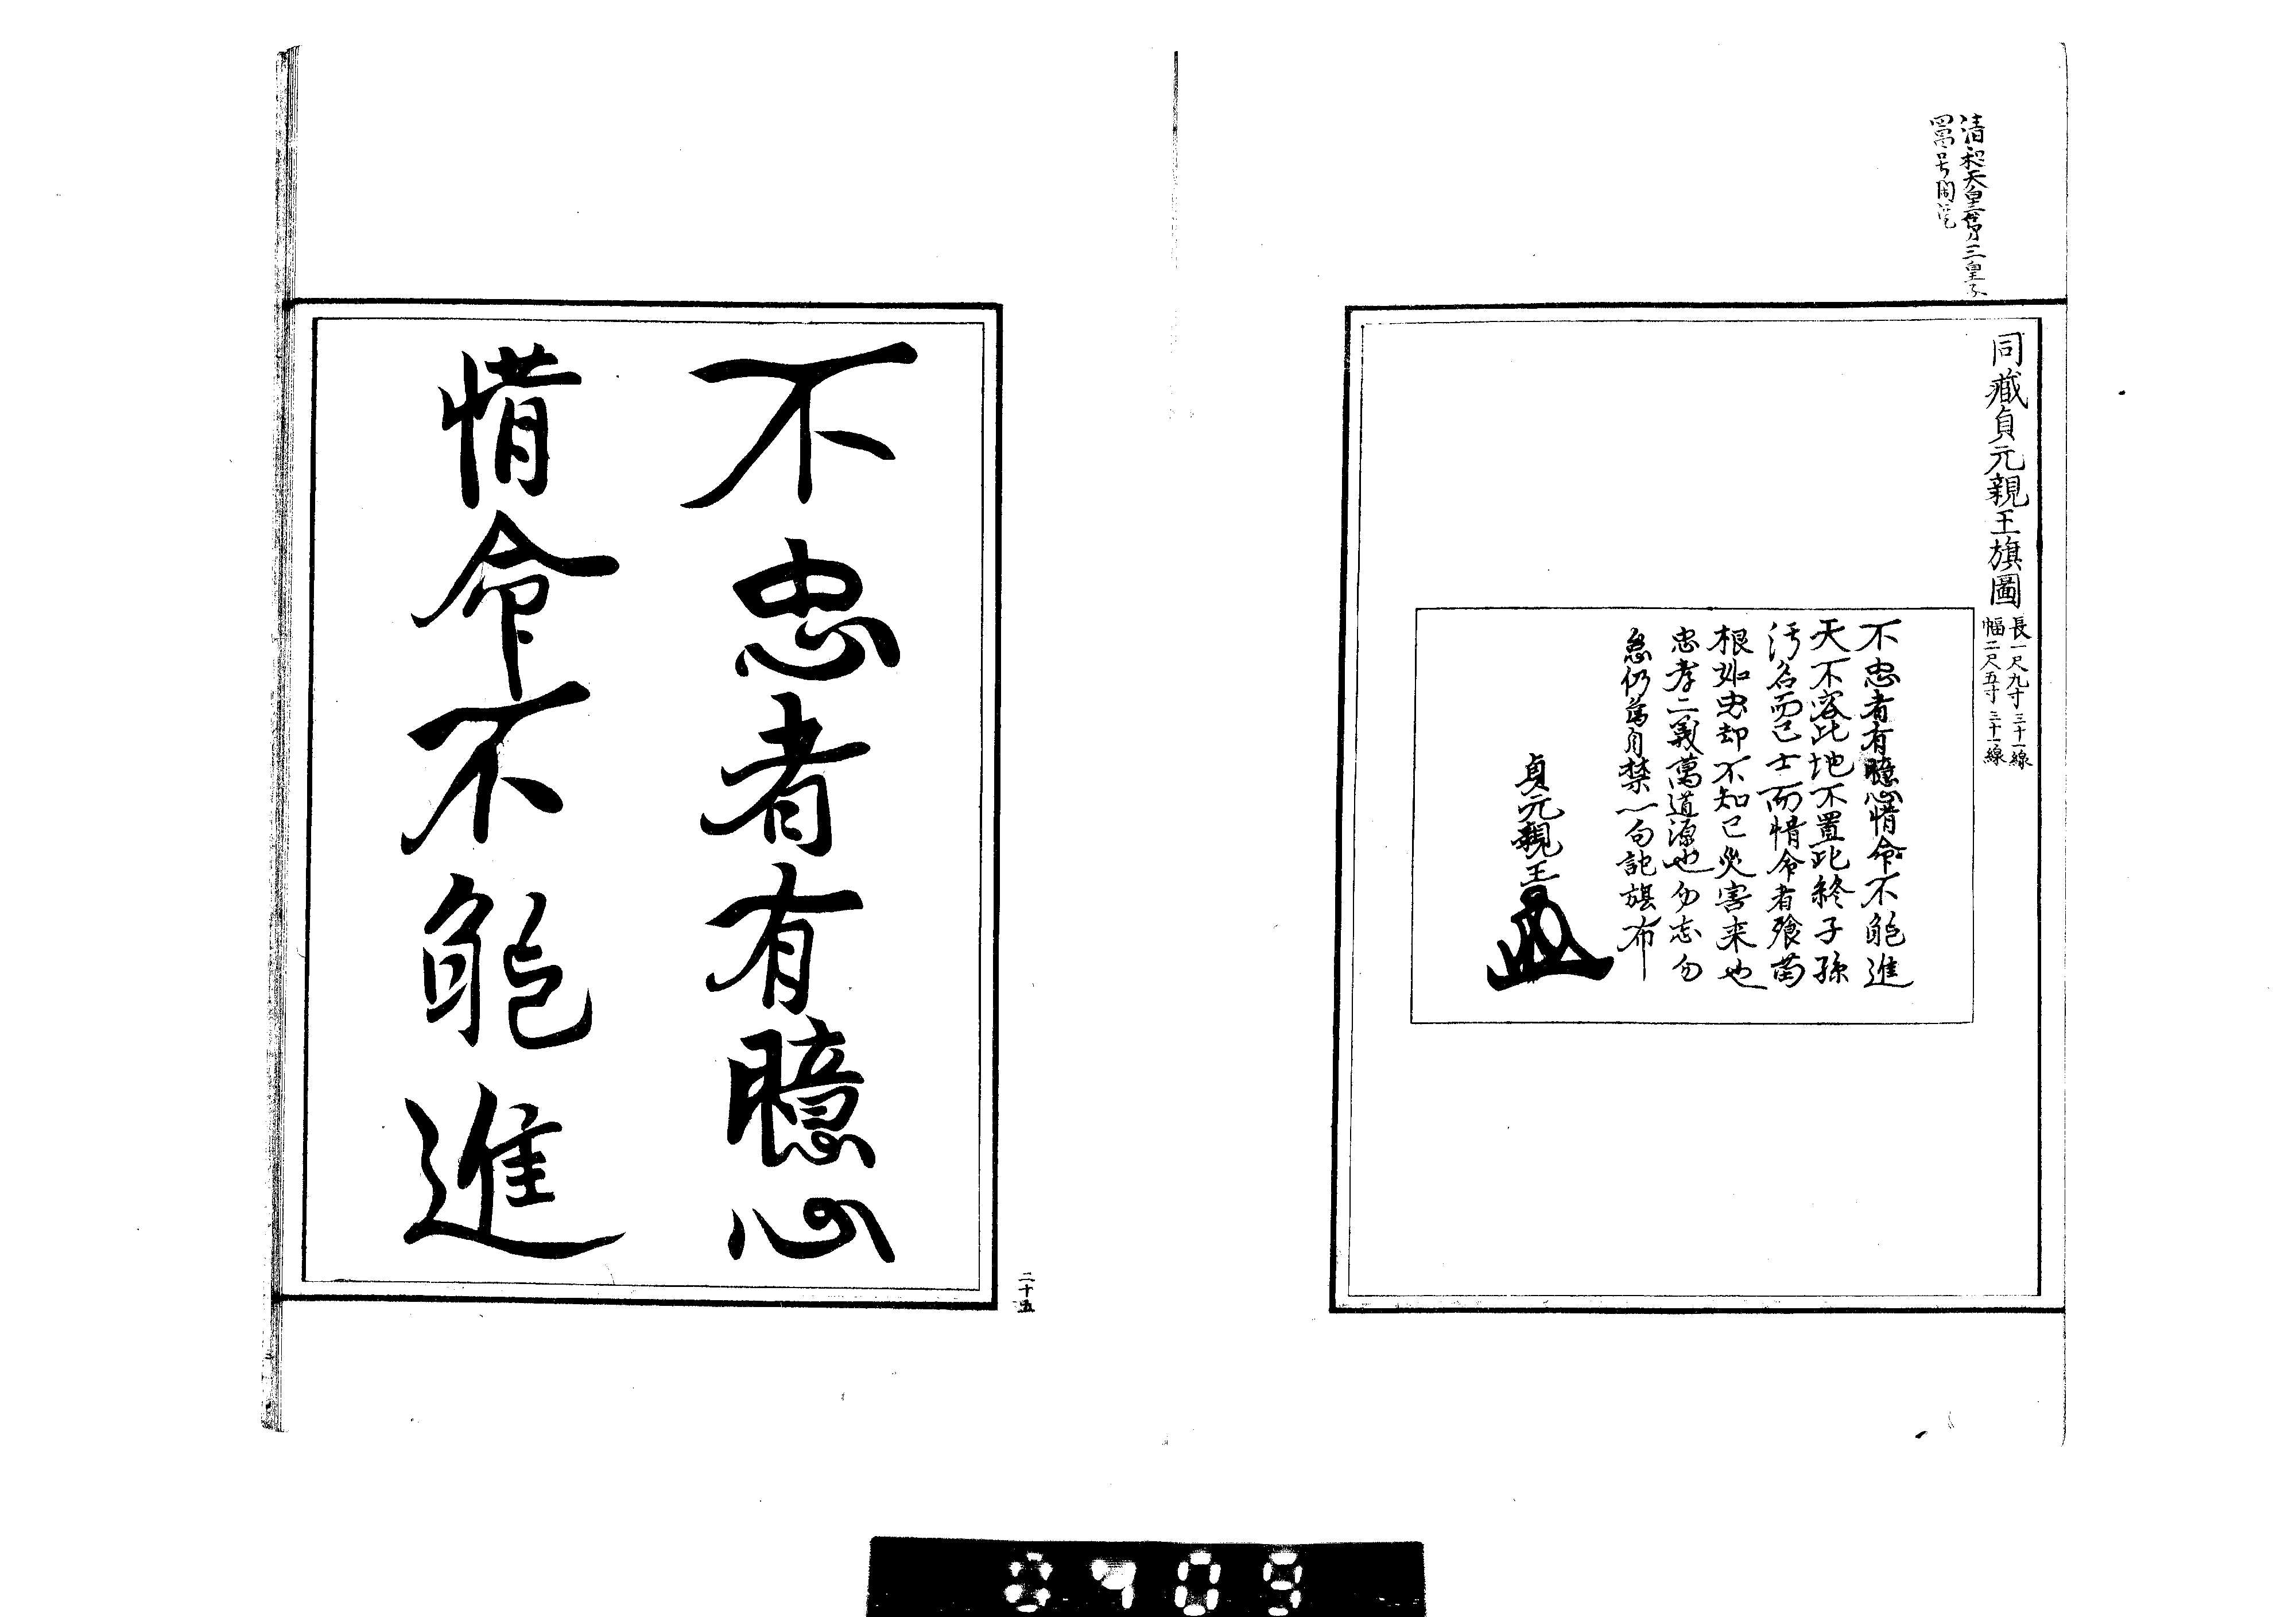 清和天皇第三皇子
号閑院
同藏貞元親王旗圖
長一尺九寸三十一線
幅二尺五寸三十一線
不忠者有臆心惜命不能進
天不容此地不置此終子孫
汚名而已士而惜命者飱苗
根如虫却不知己災害来也
忠孝二義萬道源也勿志勿
怠仍為自禁一句記旗布
貞元親王
不忠者有臆心
惜命不能進
二十五